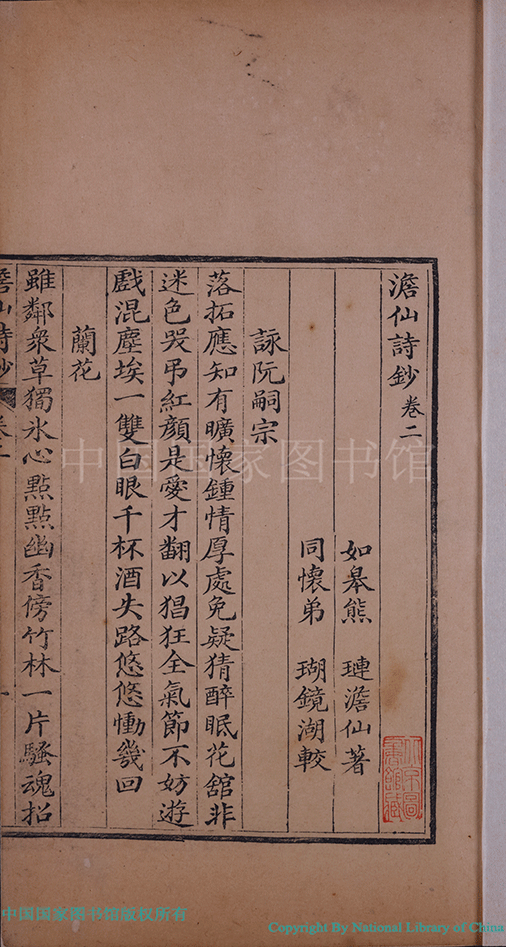 澹仙詩鈔 卷二
如皋熊 璉澹仙著
同懷弟 瑚鏡湖較
詠阮嗣宗
落拓應知有曠懷鍾情厚處免疑猜醉眠花舘非
迷色哭弔紅顏是愛才翻以猖狂全氣節不妨遊
戲混塵埃一雙白眼千杯酒失路悠悠慟幾回
蘭花
雖鄰衆草獨氷心點點幽香傍竹林一片騷魂招
澹仙詩鈔 卷二 一
中国国家图书馆
中国国家图书馆版权所有
Copyright By National Library of China